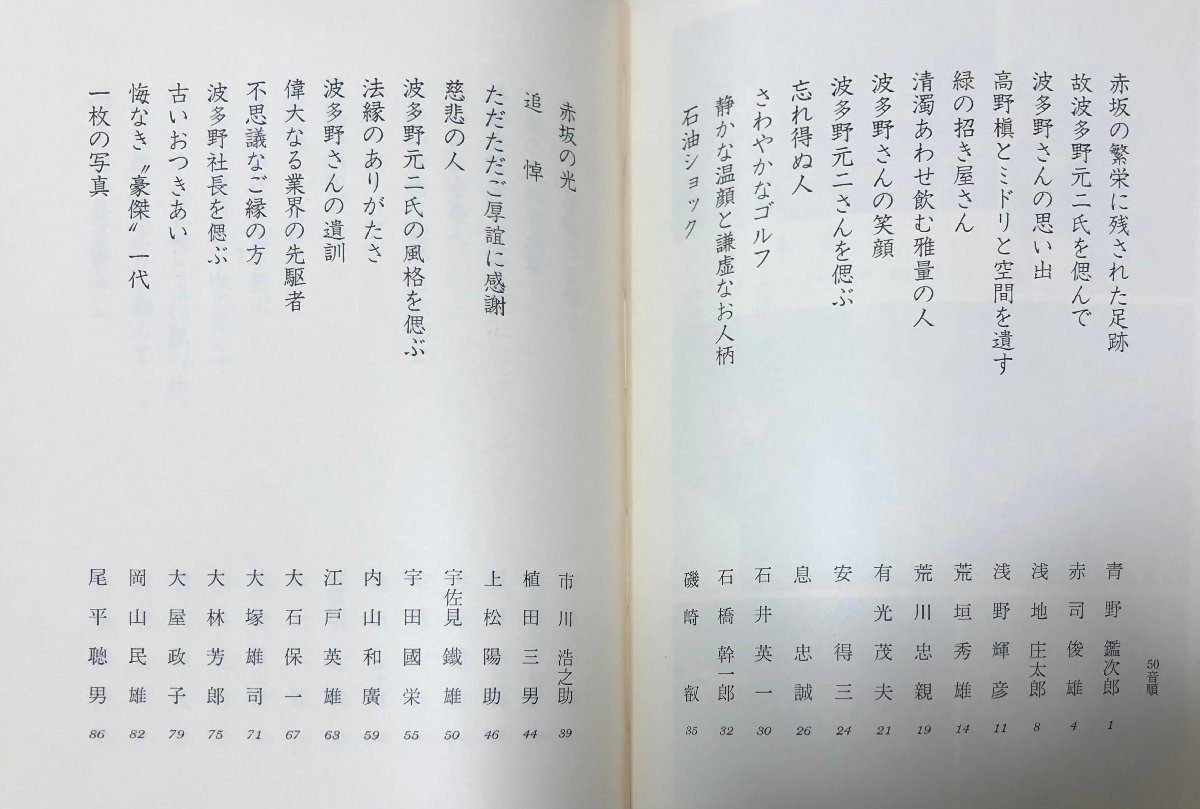 50音順
赤坂の繁栄に残された足跡 青野鑑次郎 1
故波多野元二氏を偲んで 赤司俊雄 4
波多野さんの思い出 浅地庄太郎 8
高野槇とミドリと空間を遺す 浅野輝彦 11
緑の招き屋さん 荒垣秀雄 14
清濁あわせ飲む雅量の人 荒川忠親 19
波多野さんの笑顔 有光茂夫 21
波多野元二さんを偲ぶ 安得三 24
忘れ得ぬ人 息忠誠 26
さわやかなゴルフ 石井英一 30
静かな温顔と謙虚なお人柄 石橋幹一郎 32
石油ショック 磯崎叡 35
赤坂の光 市川浩之助 39
追悼 植田三男 44
ただただご厚誼に感謝 上松陽助 46
慈悲の人 宇佐見鐵雄 50
波多野元二氏の風格を偲ぶ 宇田國栄 55
法縁のありがたさ 内山和廣 59
波多野さんの遺訓 江戸英雄 63
偉大なる業界の先駆者 大石保一 67
不思議なご縁の方 大塚雄司 71
波多野社長を偲ぶ 大林芳郎 75
古いおつきあい 大屋政子 79
悔なき〝豪傑〟一代 岡山民雄 82
一枚の写真 尾平聰男 86